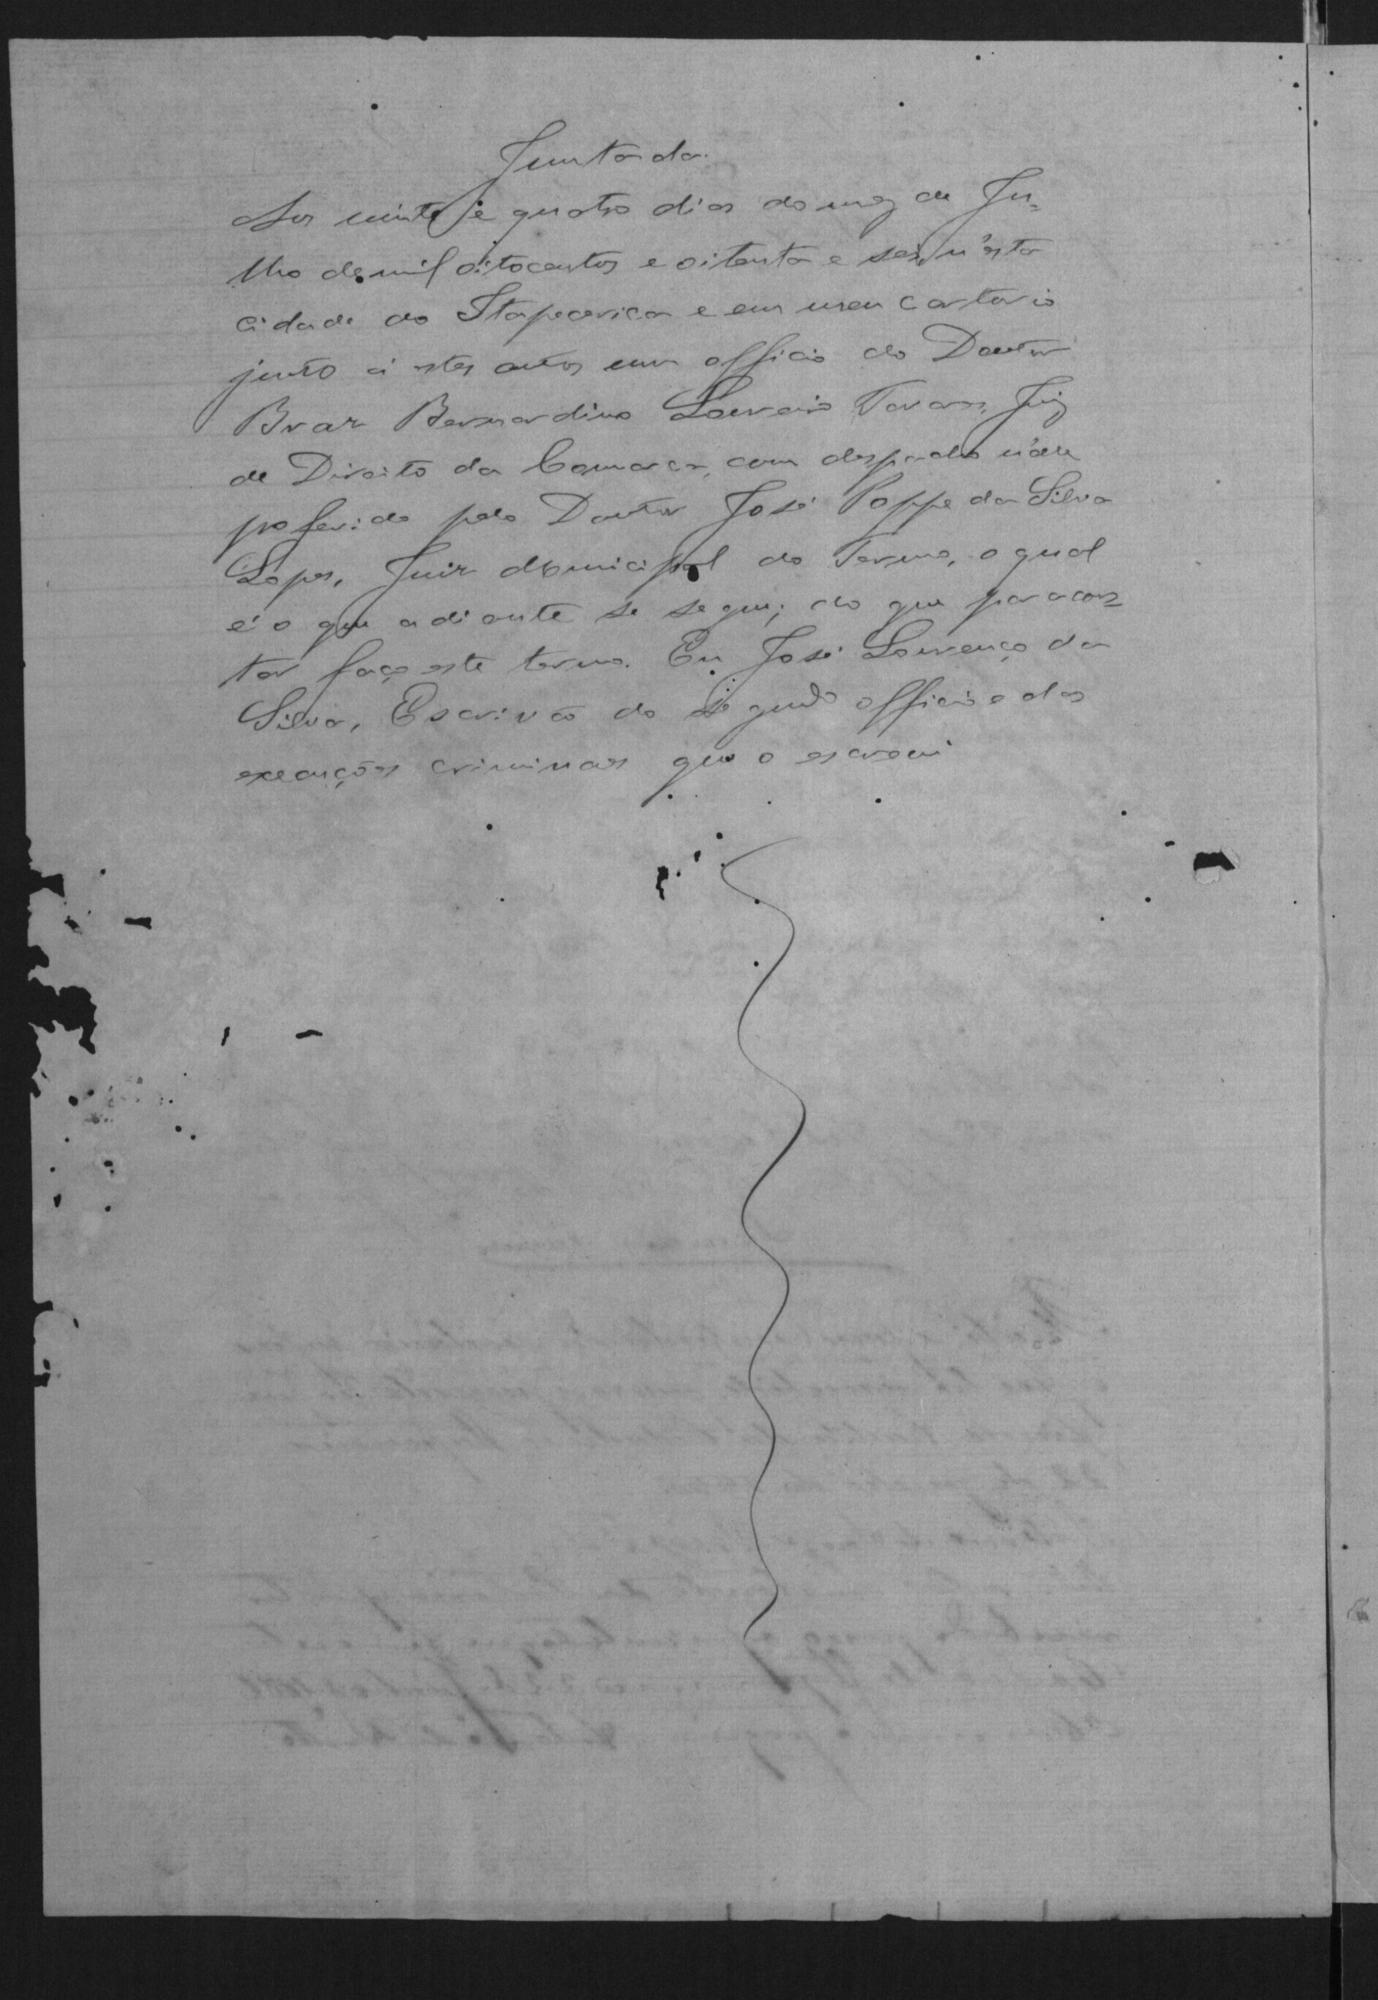 Juntada.
Aos vinte e quatro dias do mez de Ju=
lho de mil oitocentos e oitenta e seis, n'esta
cidade do Itapecerica e em meu cartorio
junto á estes autos um officio do Doutor
Braz Bernardino Loureiro Tavares, Juiz
de Direito da Comarca, com despacho n'elle
proferido pelo Doutor José Poppe da Silva
Lopes, Juiz Municipal do Termo, o qual
é o que adiante se segue; do que para cons=
tar faço este termo. Eu José Lourenço da
Silva, Escrivão do segundo officio e das
execuções criminaes que o escrevi